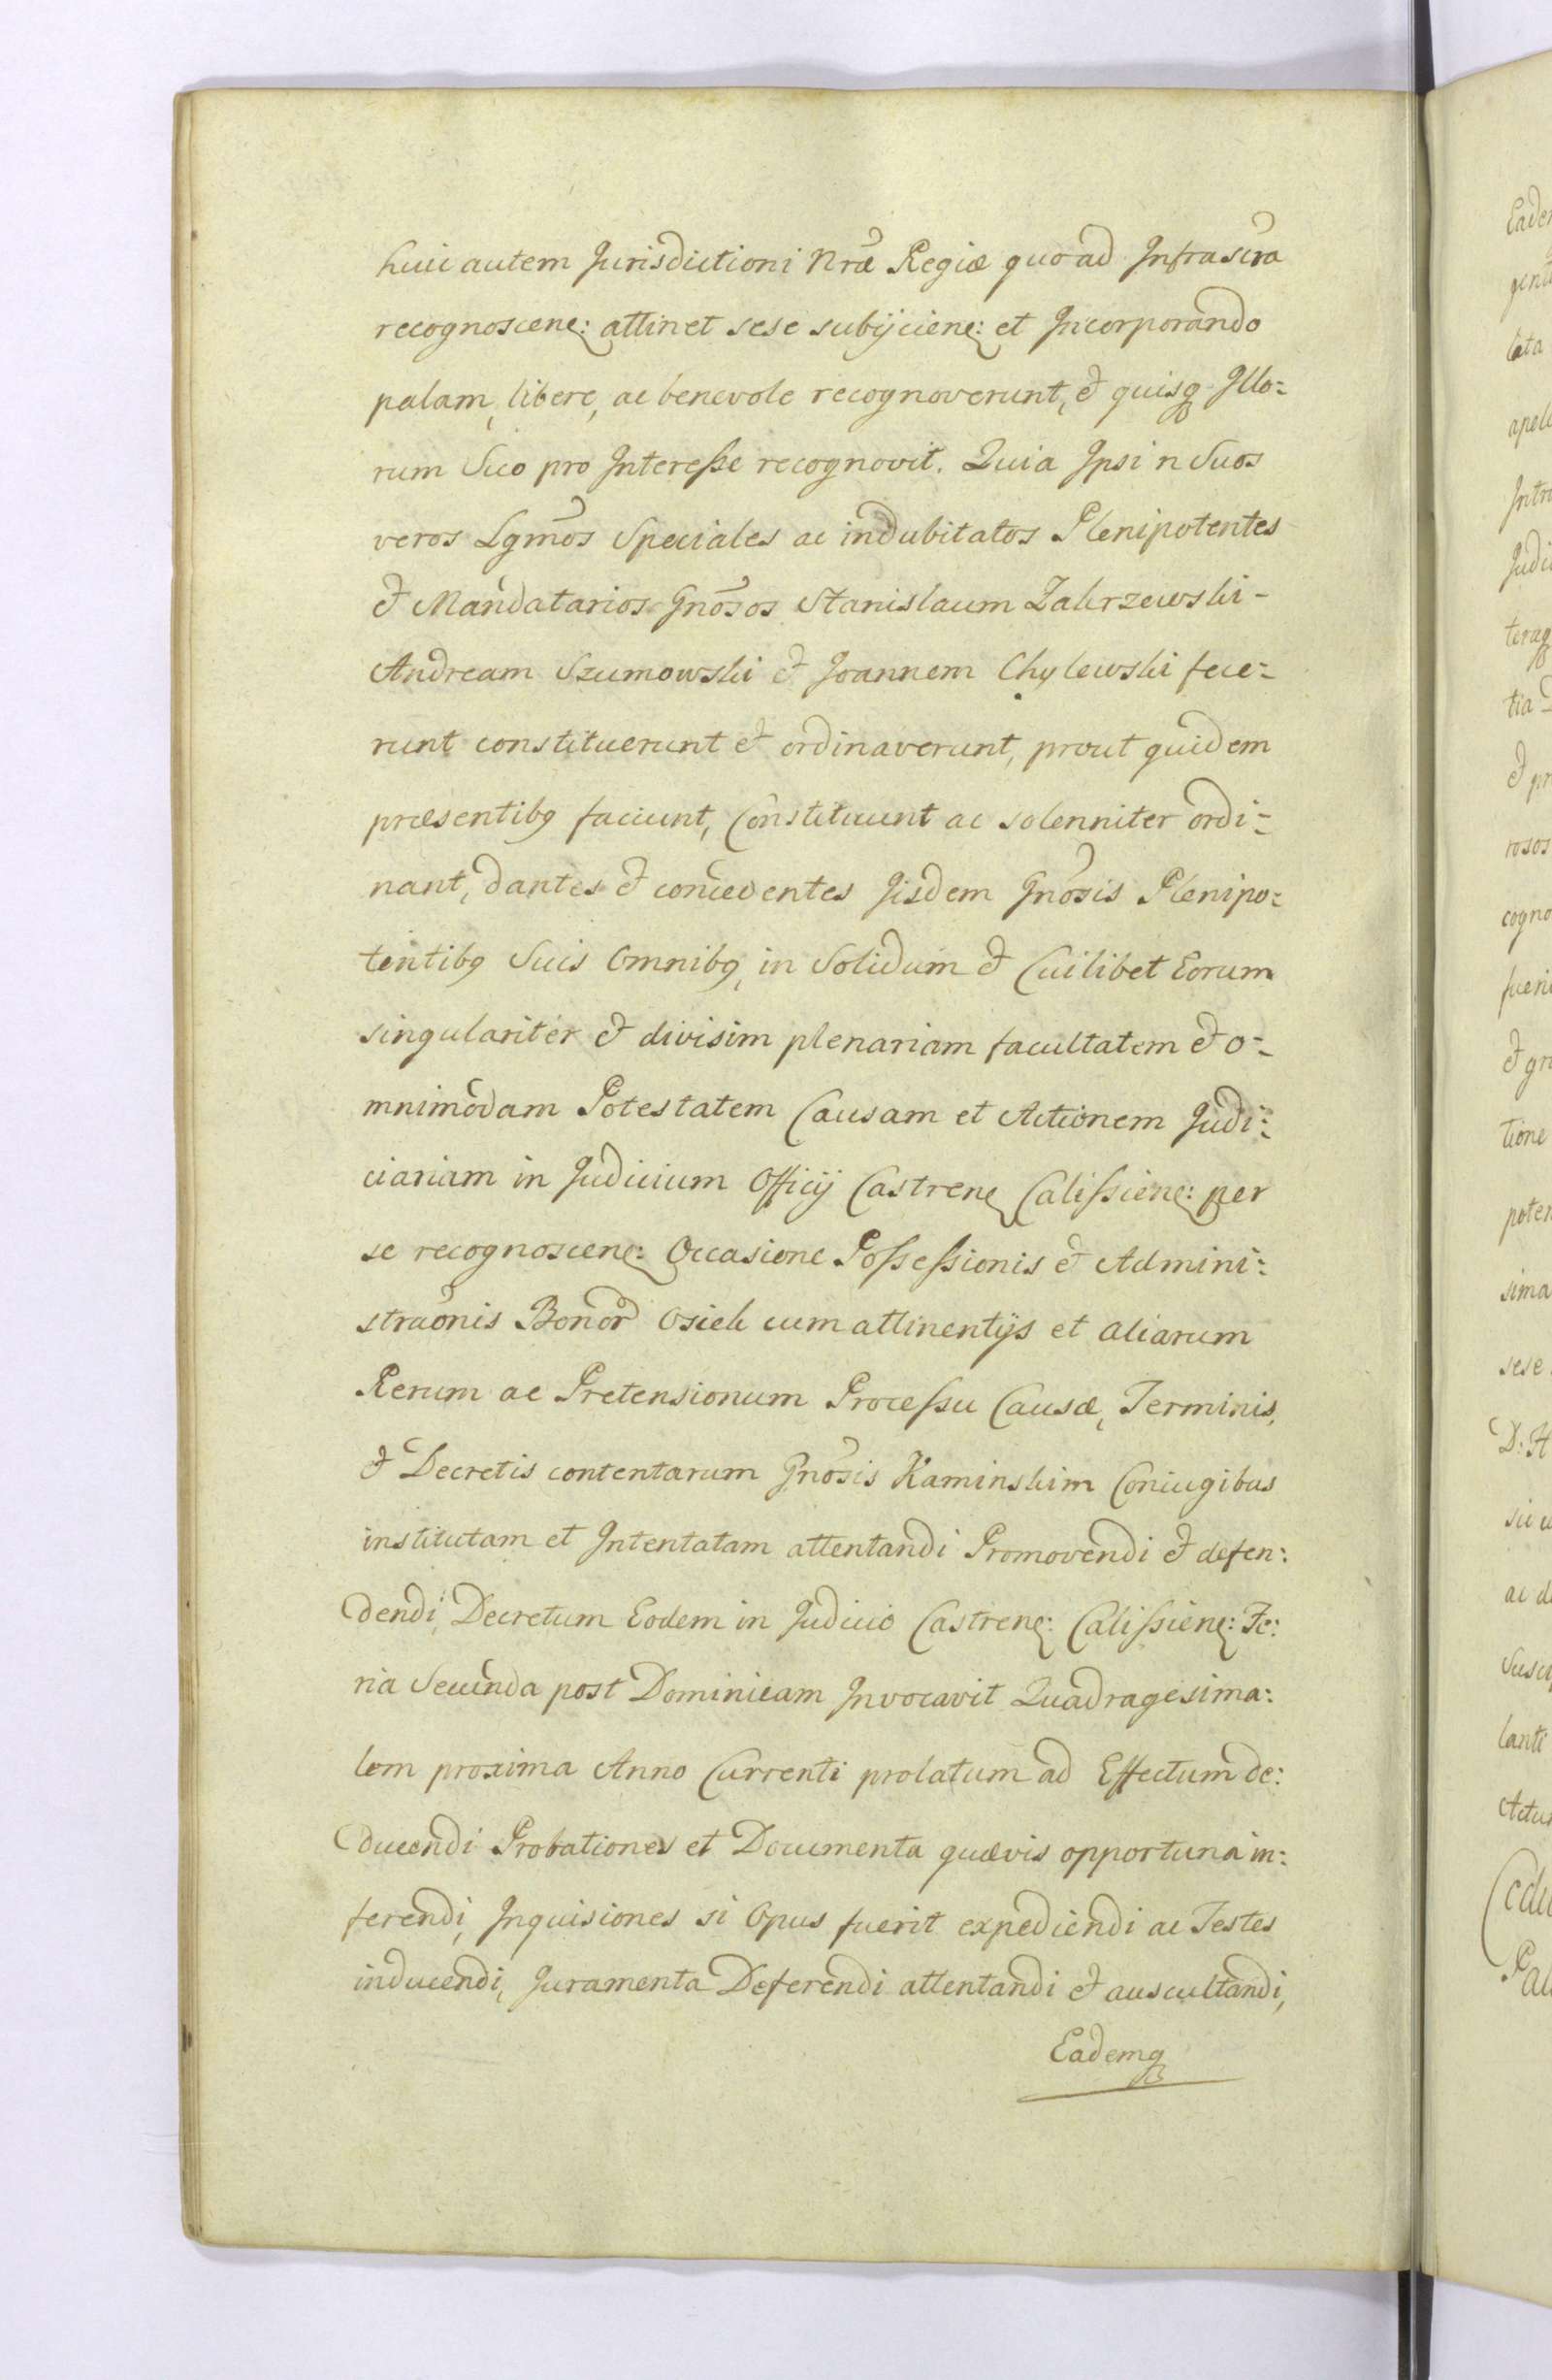 huic autem Jurisdictioni Nræ Regiæ quoad Infrascra
recognoscen: attinet sese subijcien: et Incorporando
palam, libere, ac benevole recognoverunt, et quisq Illo:
rum Suo pro Interesse recognovit. Quia Ipsi n Suos
veros Lgmos Speciales ac indubitatos Plenipotentes
et Mandatarios Gnosos Stanislaum Zakrzewski -
Andream Szumowski et Joannem Chylewski fece:
runt constituerunt et ordinaverunt, prout quidem
præsentibꝯ faciunt, Constituunt ac solenniter ordi:
nant, dantes et concedentes Jisdem Gnosis Plenipo:
tentibꝯ Suis Omnibꝯ, in Solidum et Cuilibet Eorum
singulariter et divisim plenariam facultatem et o:
mnimodam Potestatem Causam et Actionem Judi:
ciariam in Judicium Officij Castren Calissien: per
se recognoscen: Occasione Possessionis et Admini:
straonis Bonor Osiek cum attinentijs et aliarum
Rerum ac Pretensionum Processu Causæ, Terminis,
et Decretis contentarum Gnosis Kaminskim Coniugibus
institutam et Intentatam attentandi Promovendi et defen:
dendi, Decretum Eodem in Judicio Castren: Calissien: Fe:
ria Secunda post Dominicam Invocavit Quadragesima:
lem proxima Anno Currenti prolatum ad Effectum de:
ducendi Probationes et Documenta quævis opportuna in:
ferendi, Inquisiones si Opus fuerit expediendi ac Testes
inducendi, Juramenta Deferendi attentandi et auscultandi,
Eademq